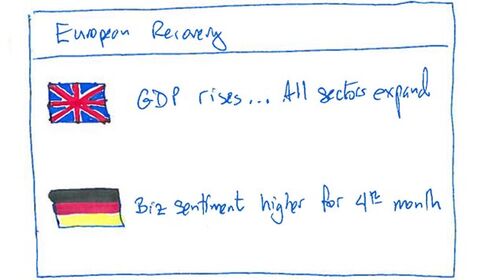 European Recovery
GDP rises... All sectors expand
Biz sentiment higher for 4th month